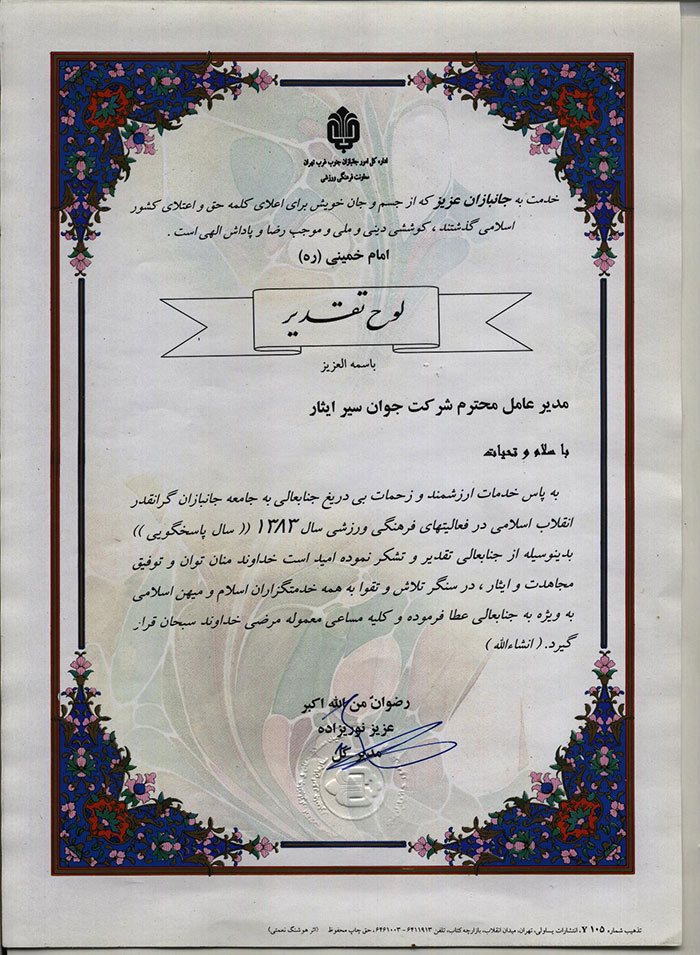 اداره کل امور جانبازان جنوب غرب تهران
معاونت فرهنگی ورزشی
خدمت به جانبازان عزیز که از جسم و جان خویش برای اعلای کلمه حق و اعتلای کشور
اسلامی گذشتند ، کوششی دینی و ملی و موجب رضا و پاداش الهی است .
امام خمینی (ره)
لوح تقدیر
باسمه العزیز
مدیر عامل محترم شرکت جوان سیر ایثار
با سلام و تحیات
به پاس خدمات ارزشمند و زحمات بی دریغ جنابعالی به جامعه جانبازان گرانقدر
انقلاب اسلامی در فعالیتهای فرهنگی ورزشی سال ۱۳۸۳ (( سال پاسخگویی ))
بدینوسیله از جنابعالی تقدیر و تشکر نموده امید است خداوند منان توان و توفیق
مجاهدت و ایثار ، در سنگر تلاش و تقوا به همه خدمتگزاران اسلام و میهن اسلامی
به ویژه به جنابعالی عطا فرموده و کلیه مساعی معموله مرضی خداوند سبحان قرار
گیرد. ( انشاءالله )
رضوانٌ من الله اکبر
عزیز نوریزاده
مدیر کل
تذهیب شماره ۱۰۵ ۷، انتشارات یساولی، تهران، میدان انقلاب، بازارچه کتاب، تلفن ۶۴۱۱۹۱۳ - ۶۴۶۱۰۰۳، حق چاپ محفوظ (اثر هوشنگ نعمتی)